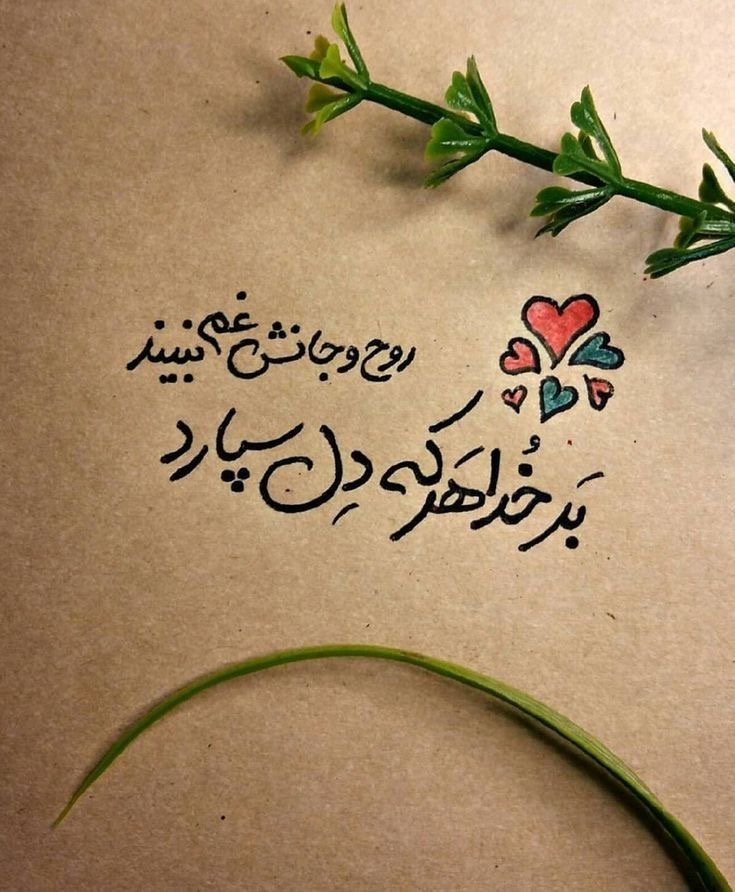 روح و جانش غم نبیند
بَر خُدا هَر که دِل سپارد